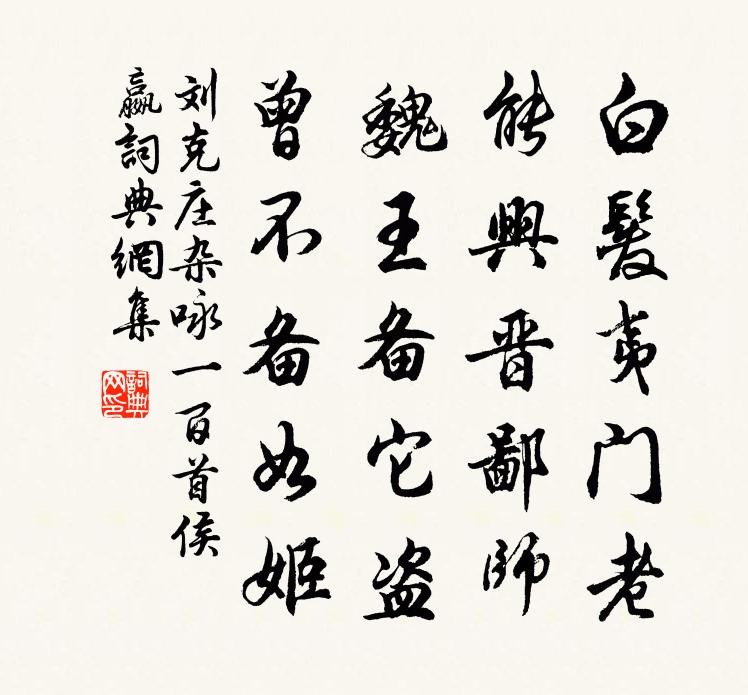 白髮夷门老
能興晋鄙師
魏王备它盗
曾不备如姬
刘克庄杂咏一百首侯
嬴詞典網集
詞典网印